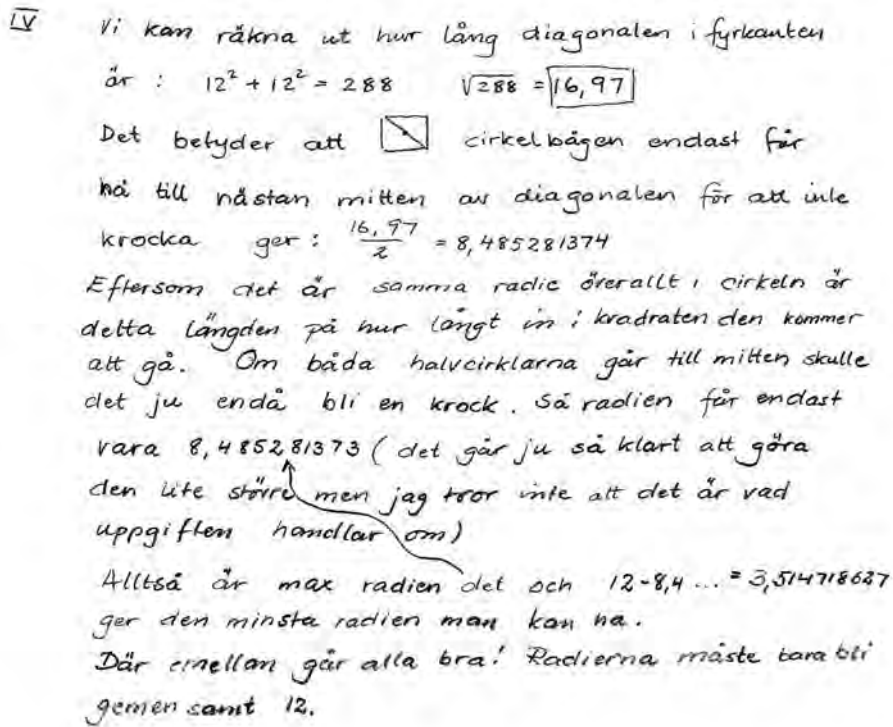 IV Vi kan räkna ut hur lång diagonalen i fyrkanten
är : 12² + 12² = 288 √288 = 16,97
Det betyder att cirkelbågen endast får
nå till nästan mitten av diagonalen för att inte
krocka ger : 16,97/2 = 8,485281374
Eftersom det är samma radie överallt i cirkeln är
detta längden på hur långt in i kvadraten den kommer
att gå. Om båda halvcirklarna går till mitten skulle
det ju endå bli en krock. Så radien får endast
vara 8,485281373 (det går ju så klart att göra
den lite större men jag tror inte att det är vad
uppgiften handlar om)
Alltså är max radien det och 12-8,4 ... = 3,514718627
ger den minsta radien man kan ha.
Där emellan går alla bra! Radierna måste bara bli
gemensamt 12.